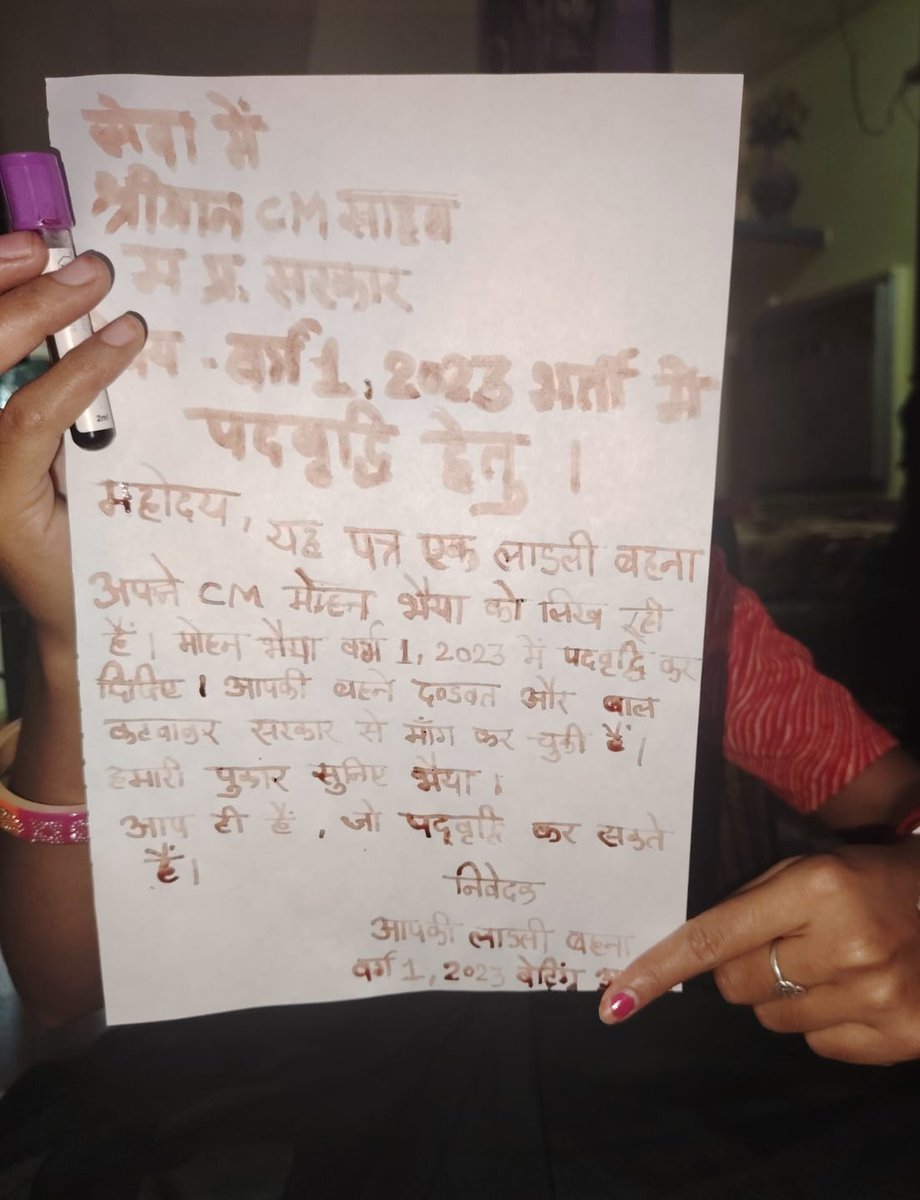 सेवा में
श्रीमान CM साहब
म प्र. सरकार
वर्ग 1, 2023 भर्ती में
पदवृद्धि हेतु।
महोदय, यह पत्र एक लाडली बहना
अपने CM मोहन भैया को लिख रही
हैं। मोहन भैया वर्ग 1, 2023 में पदवृद्धि कर
दिजिए। आपकी बहने दण्डवत और बाल
कटवाकर सरकार से माँग कर चुकी हैं।
हमारी पुकार सुनिए भैया।
आप ही है, जो पदवृद्धि कर सकते
हैं।
निवेदक
आपकी लाडली बहना
वर्ग 1, 2023 वेटिंग
2ml